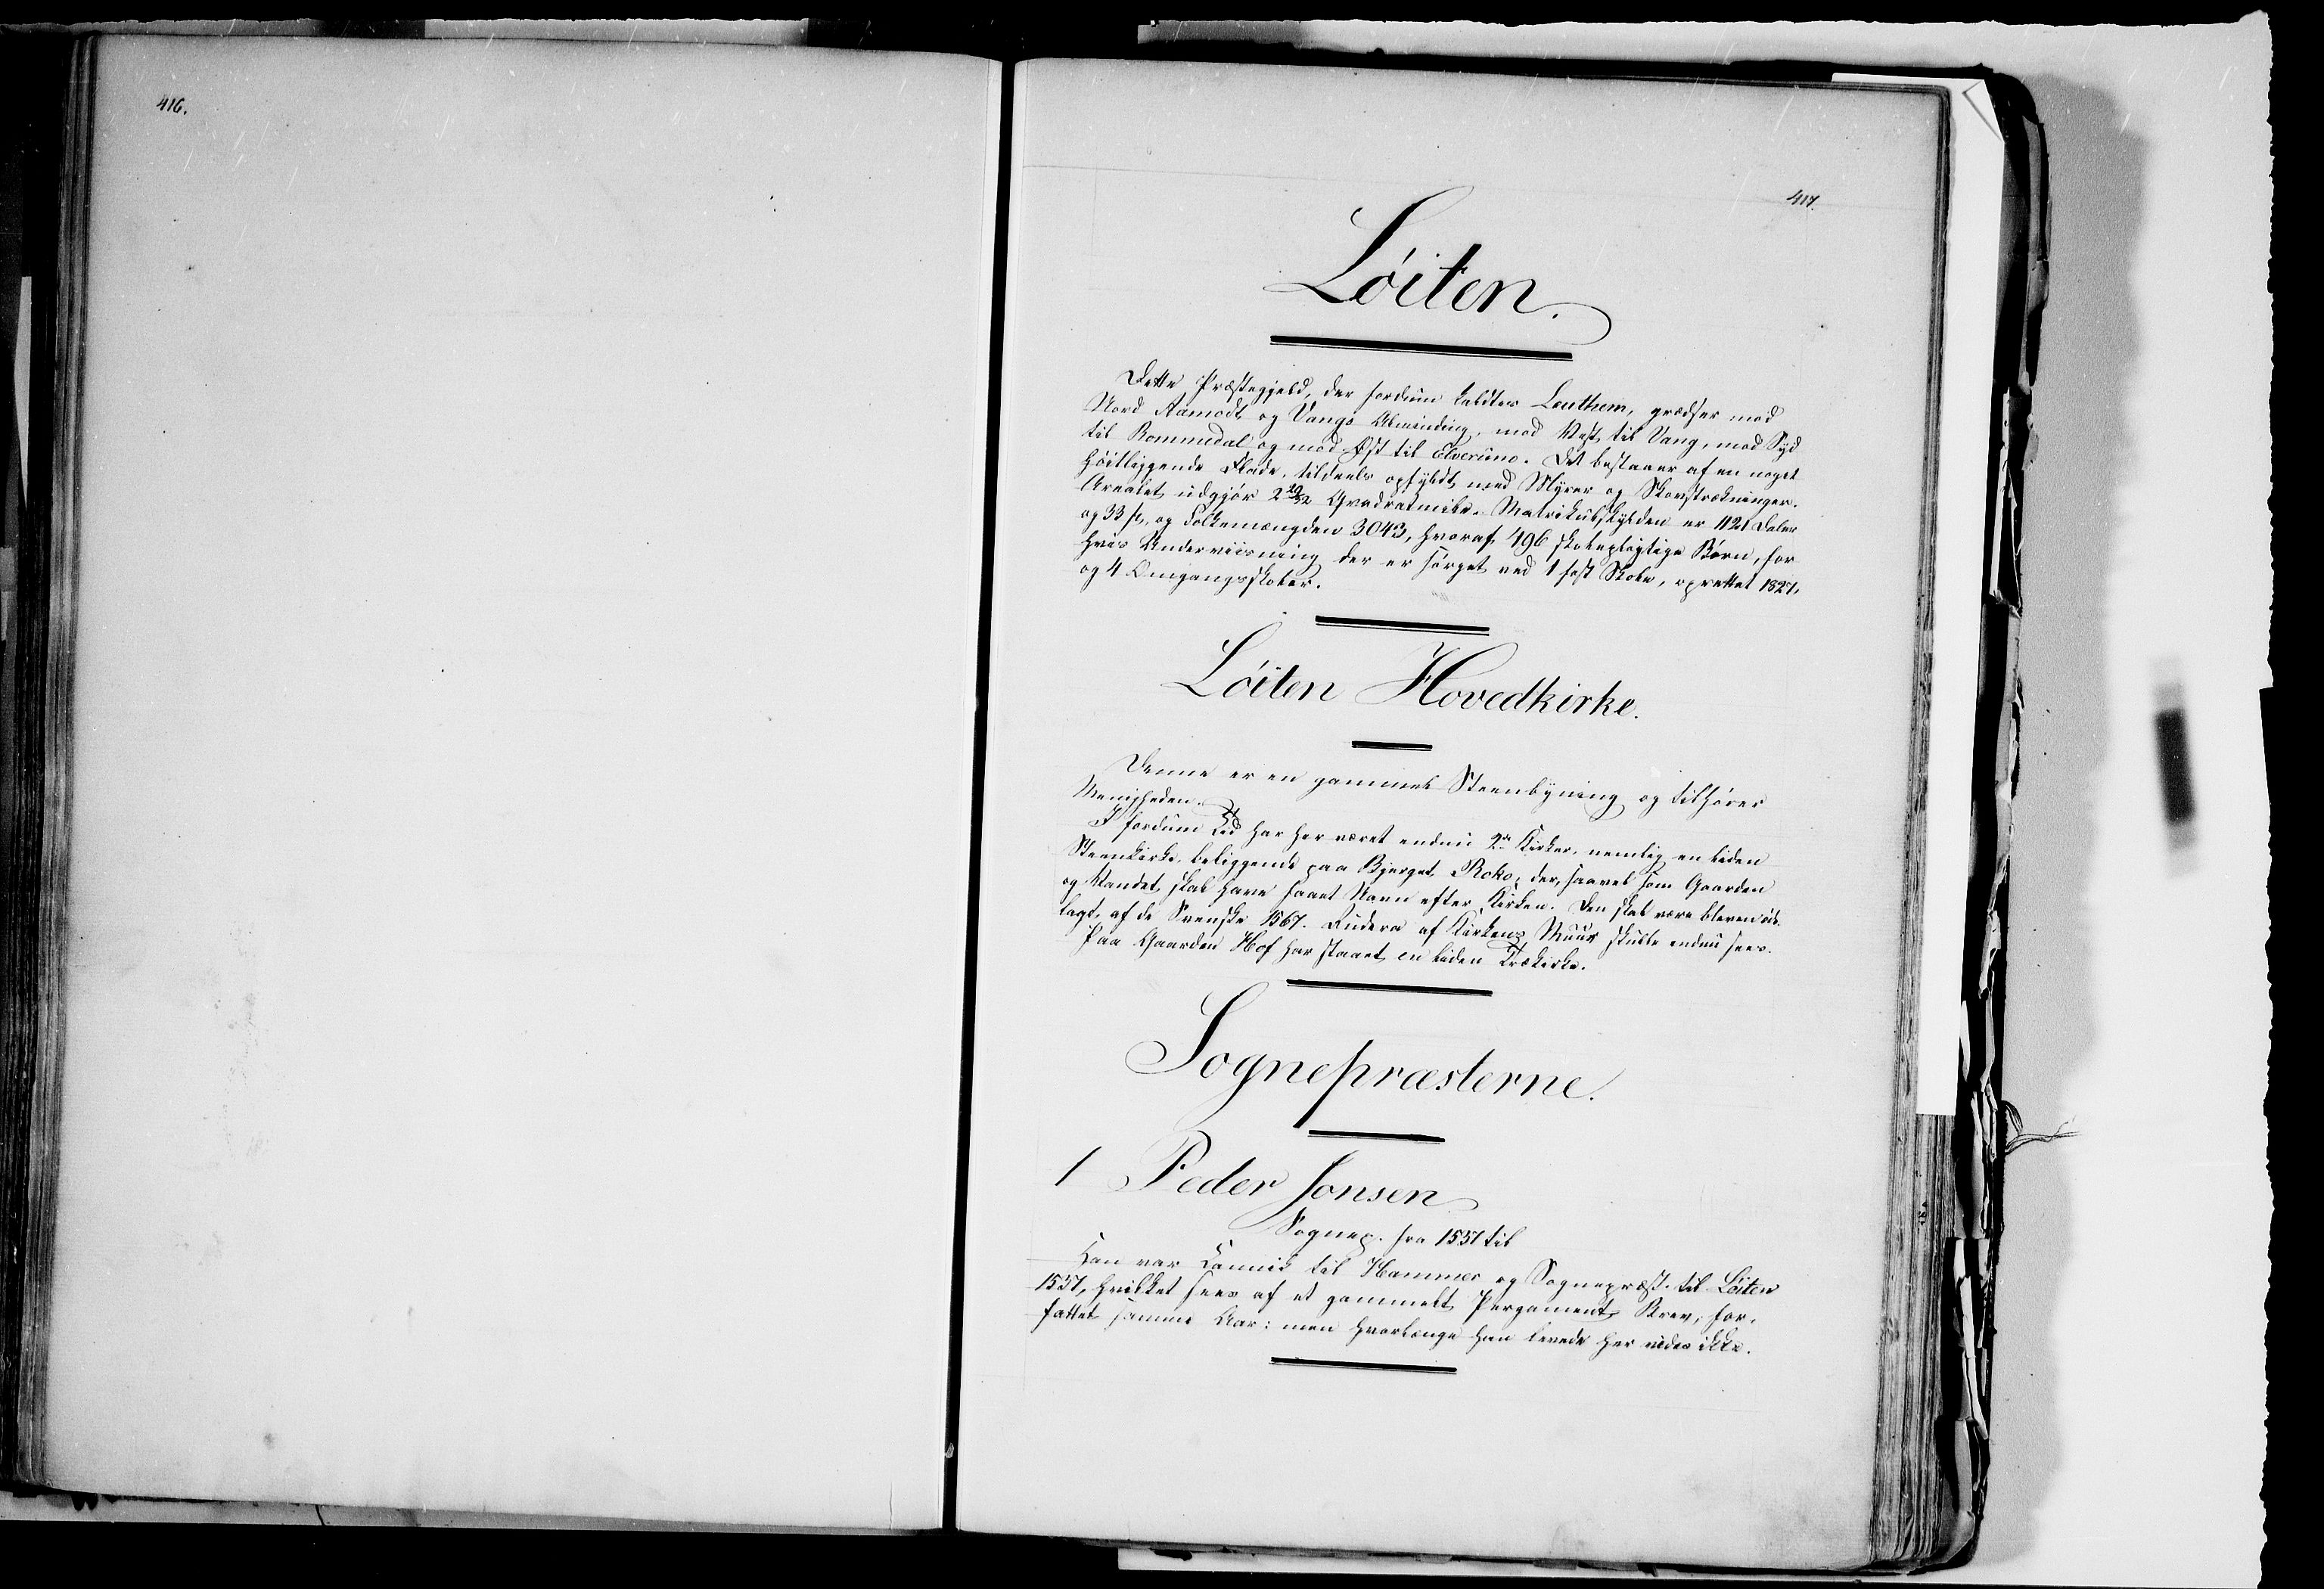 416.
417.
Löiten.
Dette Præstegjeld, der fordum kaldtes Leuthem, grædser mod
Nord Aamodt og Vangs Alminding, mod Vest til Vang, mod Syd
til Rommedal og mod Øst til Elverums. Det bestaaer af en noget
höitliggende Flade, tildeels opfyldt med Myrer og Skovstrækninger.
Arealet udgjör 2 Qvadratmile. Matrikulskylden er 1121 Daler
og 33 s, og Folkemængden 3043, hvoraf 496 skolepligtige Börn, for
hvis Underviisning der er sörget ved 1 fast Skole, oprettet 1827,
og 4 Omgangsskoler.
Löiten Hovedkirke.
Denne er en gammel Steenbyning og tilhörer
Menigheden.
I fordum Tid har her været endnu 2de Kirker, nemlig en liden
Steenkirke, beliggende paa Bjerget Roko, der, saavel som Gaarden
og Vandet, skal have faaet Navn efter Kirken. Den skal være bleven öde-
lagt, af de Svenske 1567. Rudera af Kirkens Muur skulle endnu sees.
Paa Gaarden Hof har staaet en liden Trækirke.
Sognepræsterne.
1 Peder Jonsen
Sognep. fra 1557 til
Han var Kannik til Hammer og Sognepræst til Löiten
1557, hvilket sees af et gammelt Pergaments Brev, for-
fattet samme Aar: men hvorlænge han levede her vides ikke.